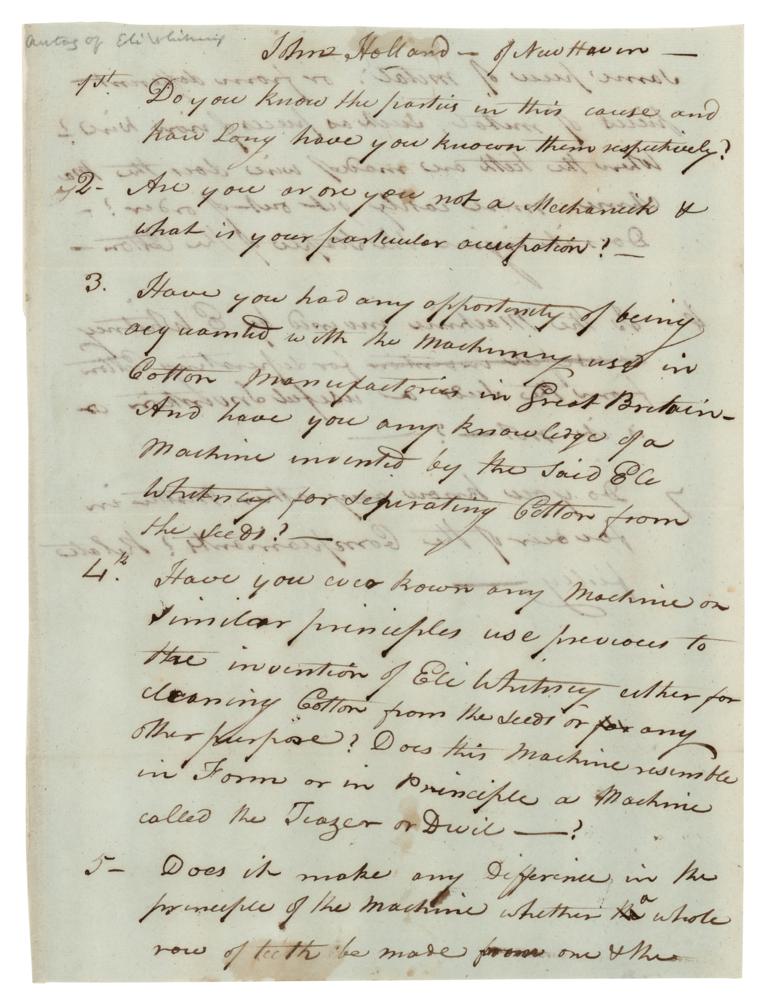 Autog of Eli Whitney
John Holland — of New Haven —
1st. Do you know the parties in this cause and
how Long have you known them respectively?
2- Are you or are you not a Mechanick &
what is your particular occupation? —
3. Have you had any opportunity of being
acquainted with the Machinery used in
Cotton Manufactories in Great Britain -
And have you any knowledge of a
Machine invented by the Said Eli
Whitney for seperating Cotton from
the seeds? —
4.th Have you ever kown any Machine on
Similar principles use previous to
the invention of Eli Whitney either for
cleaning Cotton from the seeds or for any
other purpose? Does this Machine resemble
in Form or in Principle a Machine
called the Teazer or Devil —?
5- Does it make any Difference in the
principle of the Machine whether a whole
row of teeth be made from one & the